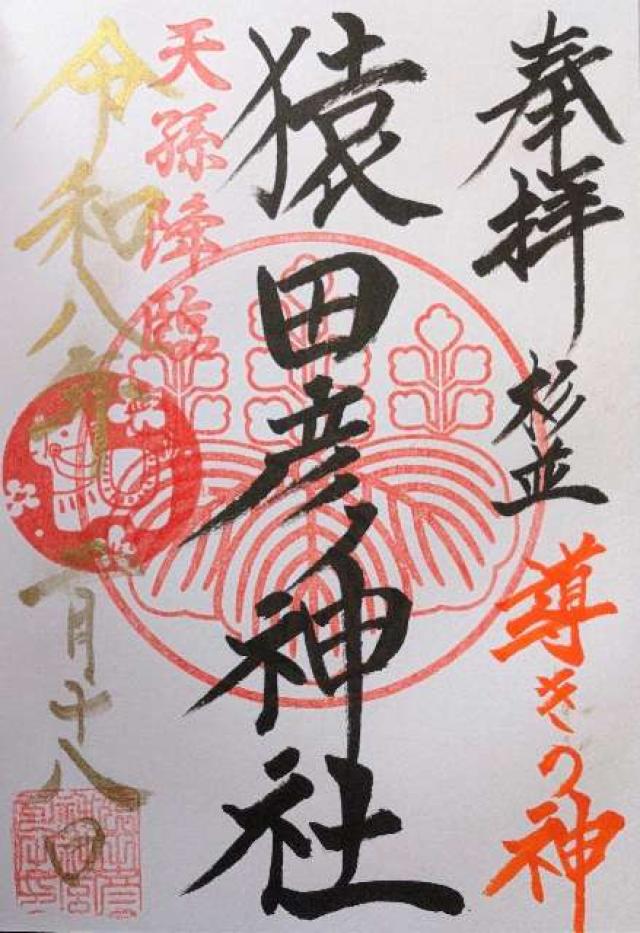 奉拝
杉並
導きの神
猿田彦神社
天孫降臨
令和八年二月十八日